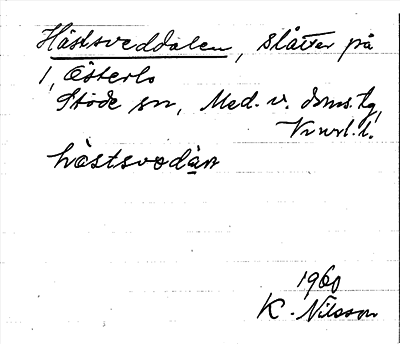 Hästsveddalen, slåtter på
1, Österlo
Stöde sn, Med. v. doms.tg,
Vnrl. l.
hästsvedàṇ
1960
K. Nilsson